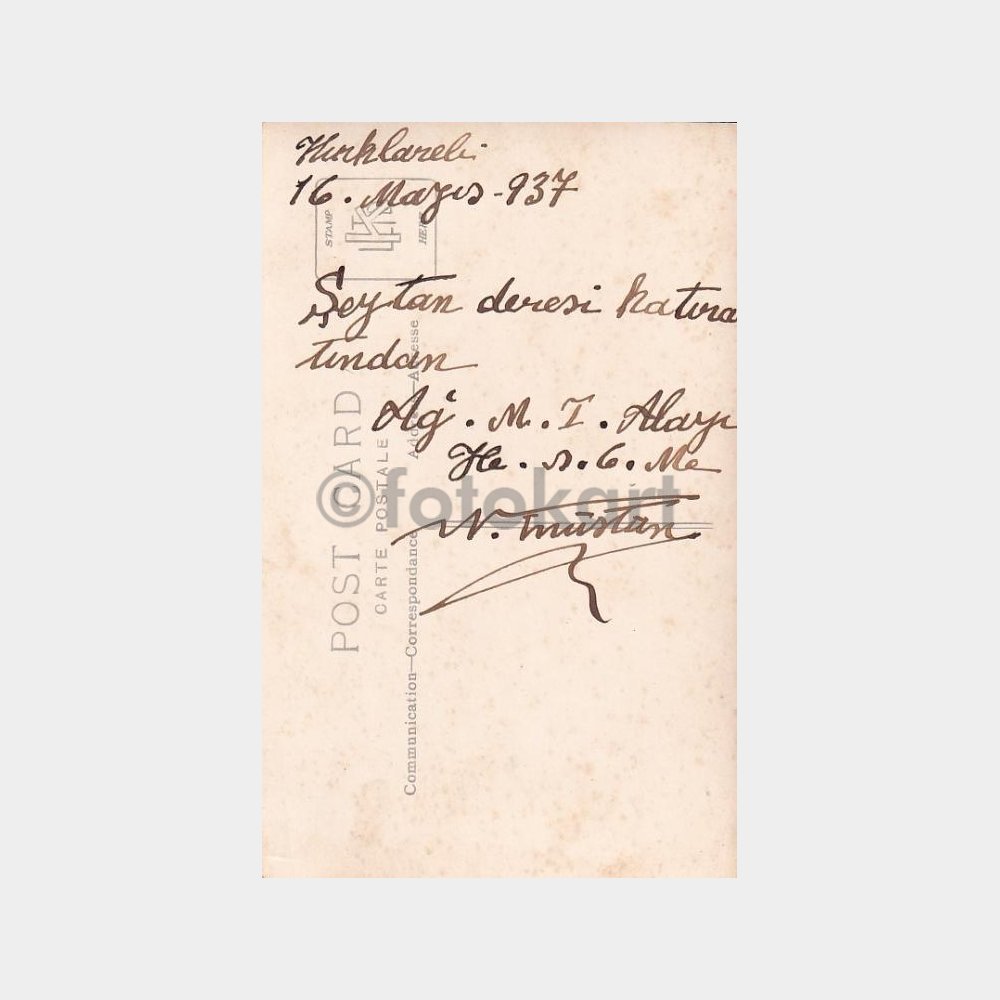 Kırklareli
16. Mayıs-937
Şeytan deresi hatıra
tından
Ağ. M. I. Alayı
He. s. 6. Me
N.
©fotokart
STAMP
HERE
POST CARD
CARTE POSTALE
Communication—Correspondance
Address—Adresse